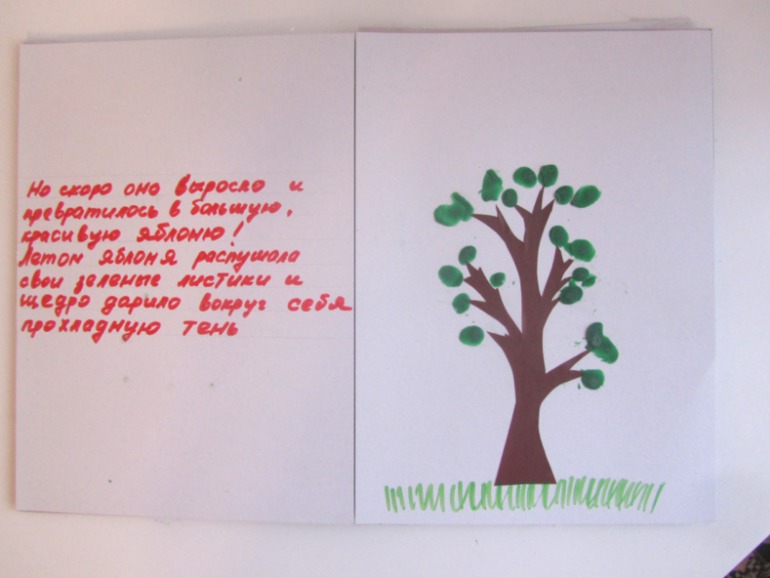 Но скоро оно выросло и
превратилось в большую,
красивую яблоню!
Летом яблоня распушала
свои зеленые листики и
щедро дарило вокруг себя
прохладную тень